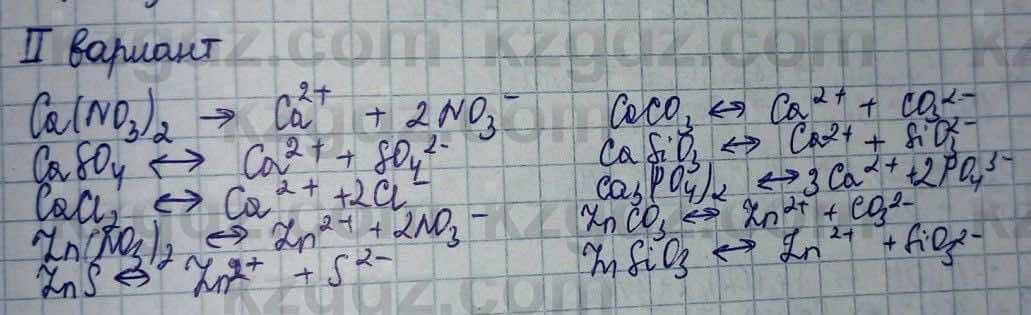 II вариант
Ca(NO₃)₂ → Ca²⁺ + 2NO₃⁻
CaSO₄ ↔ Ca²⁺ + SO₄²⁻
CaCl₂ ↔ Ca²⁺ + 2Cl⁻
Zn(NO₃)₂ ↔ Zn²⁺ + 2NO₃⁻
ZnS ↔ Zn²⁺ + S²⁻
CaCO₃ ↔ Ca²⁺ + CO₃²⁻
CaSiO₃ ↔ Ca²⁺ + SiO₃²⁻
Ca₃(PO₄)₂ ↔ 3Ca²⁺ + 2PO₄³⁻
ZnCO₃ ↔ Zn²⁺ + CO₃²⁻
ZnSiO₃ ↔ Zn²⁺ + SiO₃²⁻
kzgdz.com